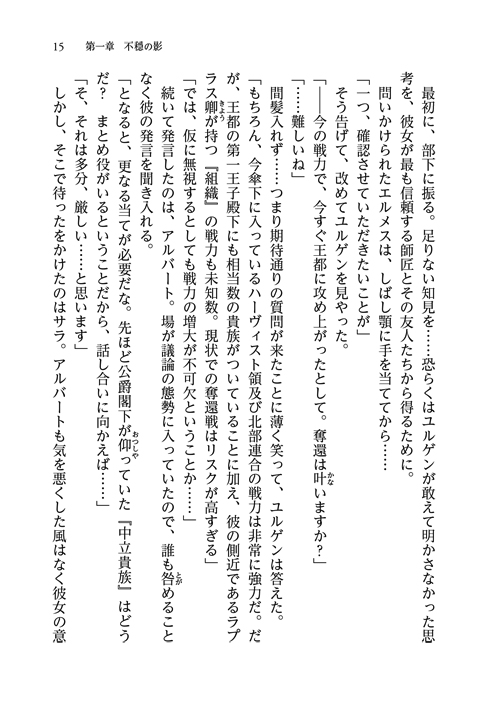 15　第一章　不穏の影
　最初に、部下に振る。足りない知見を……恐らくはユルゲンが敢えて明かさなかった思
考を、彼女が最も信頼する師匠とその友人たちから得るために。
　問いかけられたエルメスは、しばし顎に手を当ててから……
「一つ、確認させていただきたいことが」
　そう告げて、改めてユルゲンを見やった。
「――今の戦力で、今すぐ王都に攻め上がったとして。奪還は叶いますか？」
「……難しいね」
　間髪入れず……つまり期待通りの質問が来たことに薄く笑って、ユルゲンは答えた。
「もちろん、今傘下に入っているハーヴィスト領及び北部連合の戦力は非常に強力だ。だ
が、王都の第一王子殿下にも相当数の貴族がついていることに加え、彼の側近であるラプ
ラス卿が持つ『組織』の戦力も未知数。現状での奪還戦はリスクが高すぎる」
「では、仮に無視するとしても戦力の増大が不可欠ということか……」
　続いて発言したのは、アルバート。場が議論の態勢に入っていたので、誰も咎めること
なく彼の発言を聞き入れる。
「となると、更なる当てが必要だな。先ほど公爵閣下が仰っていた『中立貴族』はどう
だ？　まとめ役がいるということだから、話し合いに向かえば……」
「そ、それは多分、厳しい……と思います」
　しかし、そこで待ったをかけたのはサラ。アルバートも気を悪くした風はなく彼女の意